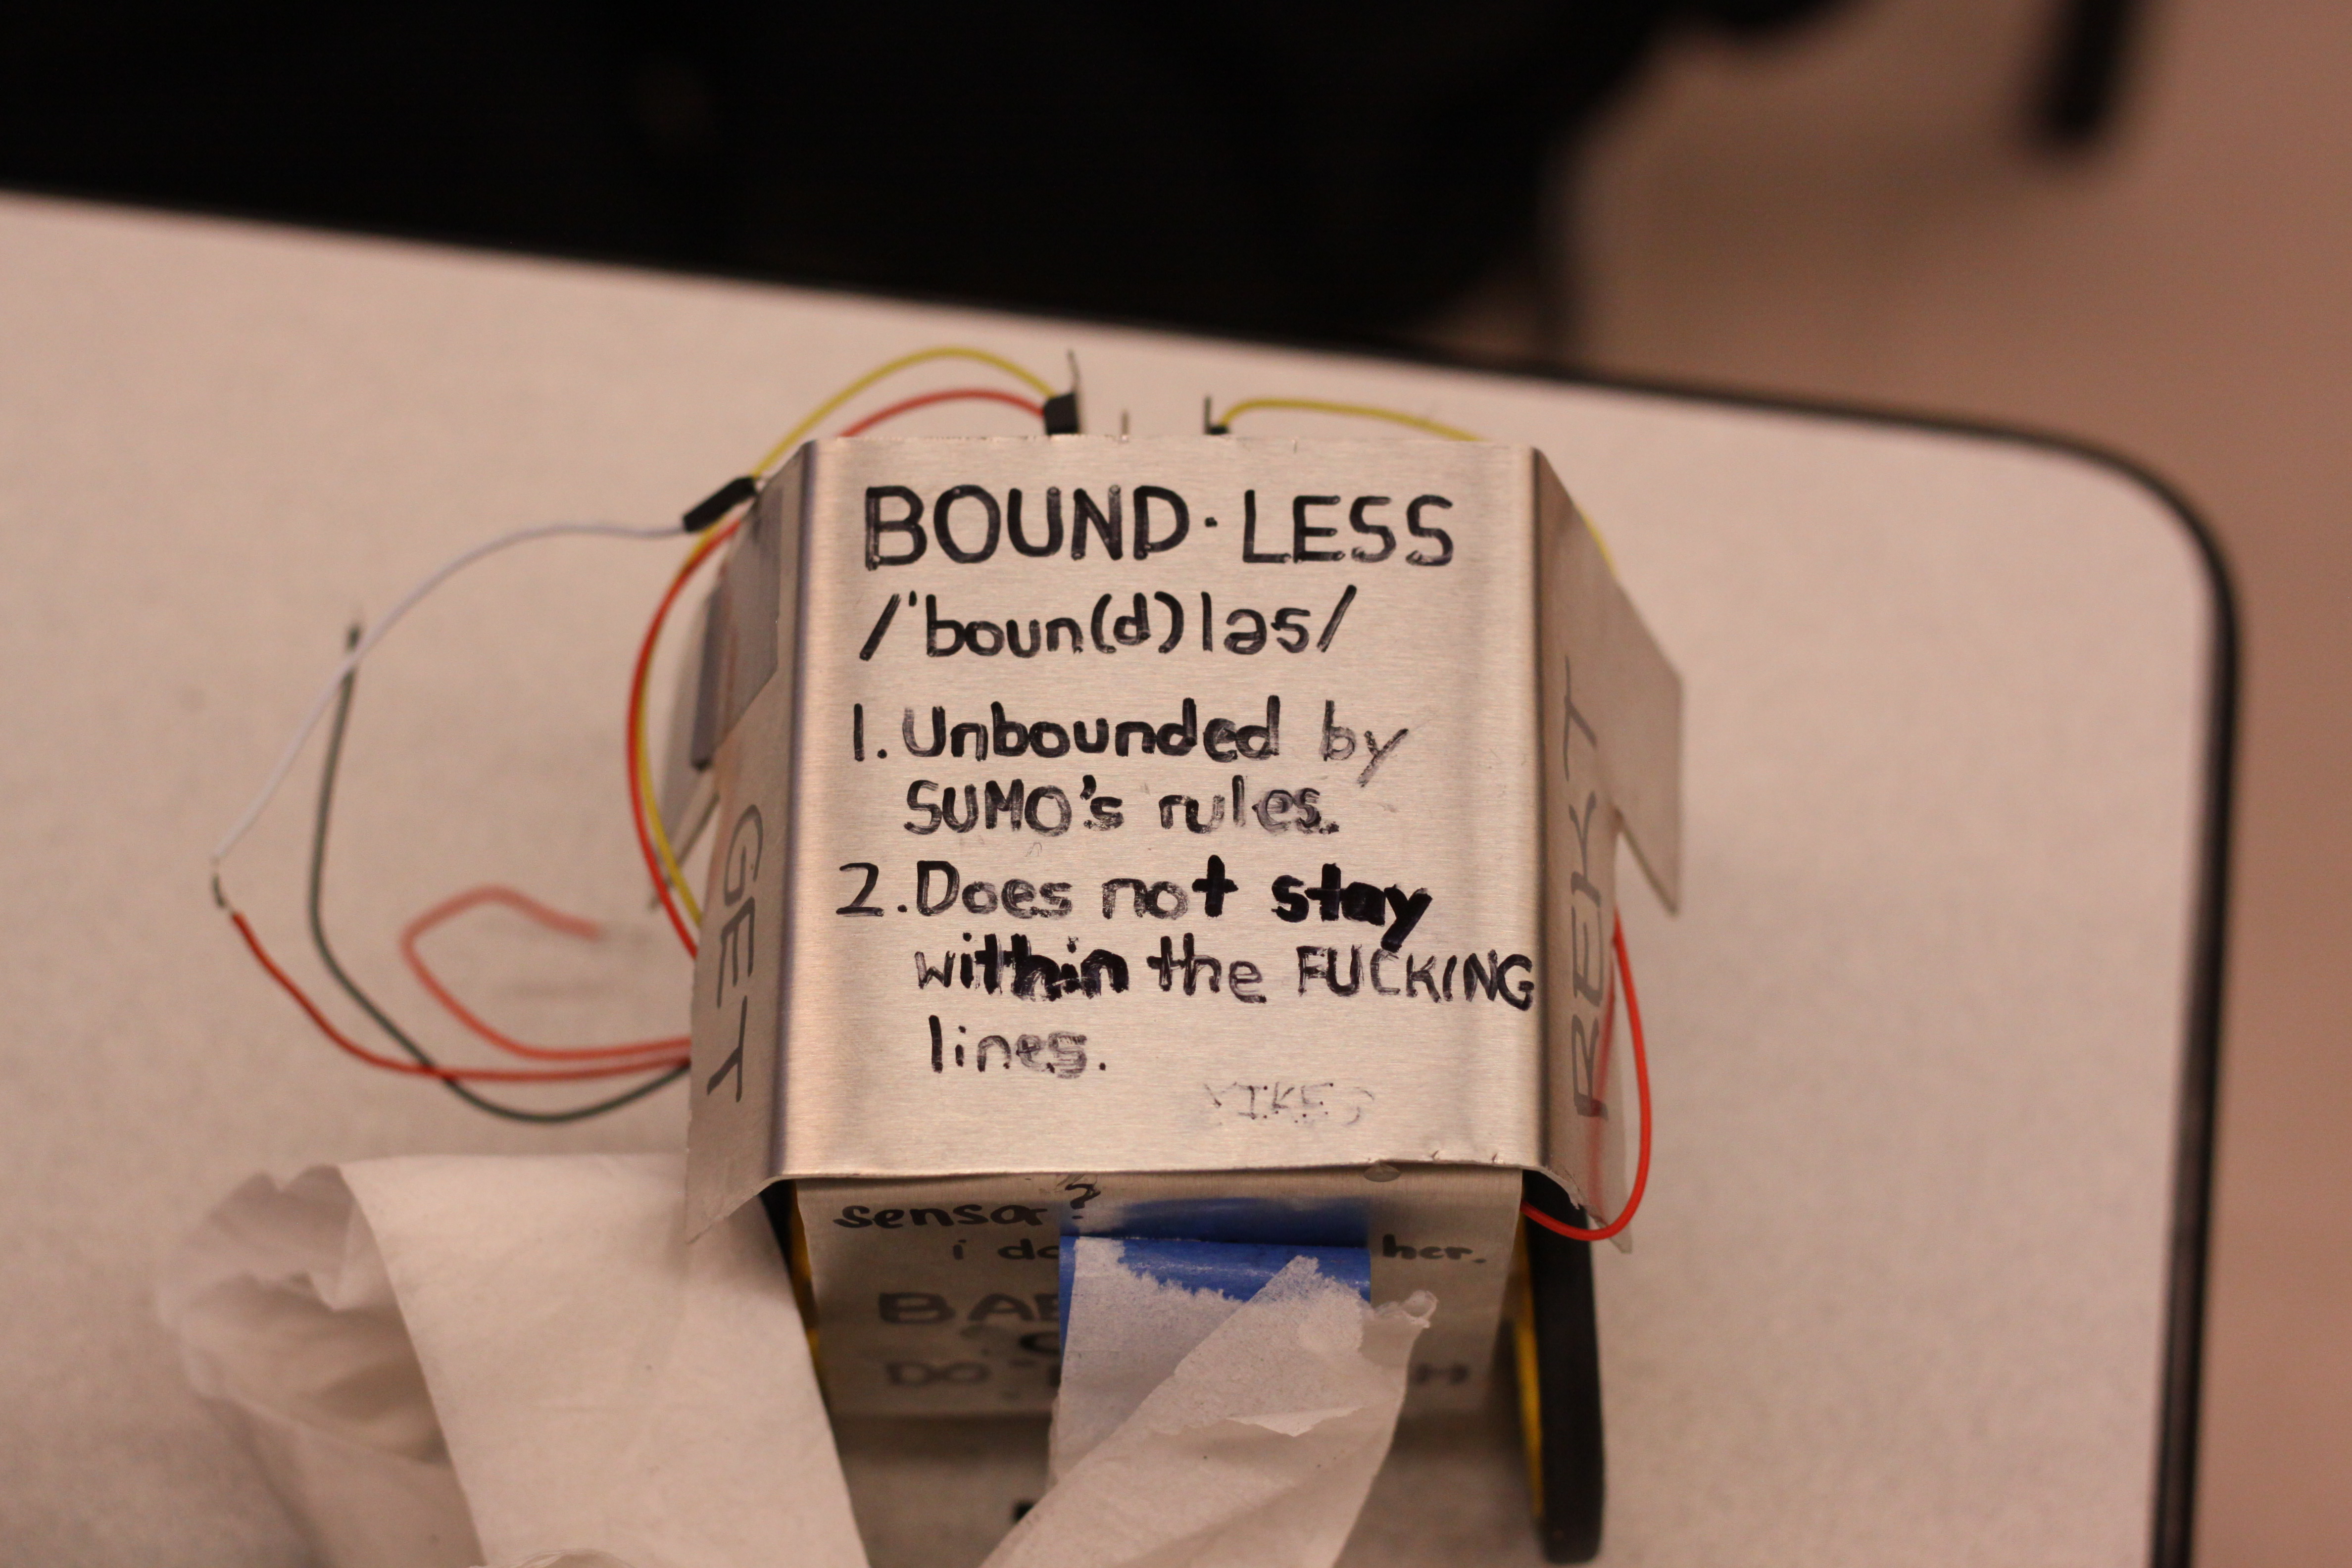 BOUND·LESS
/ˈboun(d)ləs/
1. Unbounded by
SUMO's rules.
2. Does not stay
within the FUCKING
lines.
GET
REKT
sensor?
i
her.
DO